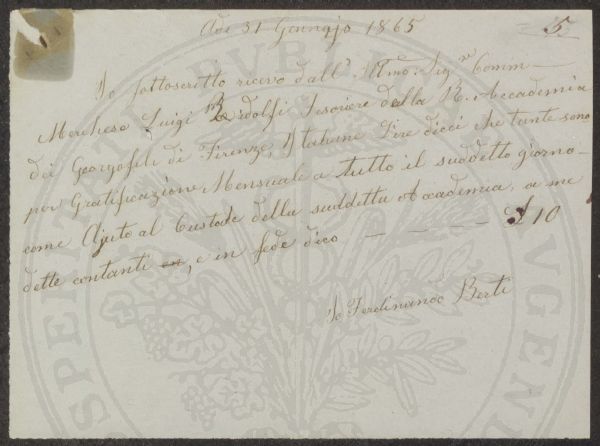 Adi 31 Gennajo 1865
5
Io sottoscritto ricevo dall'. Illmo: Sigr. Comm=
Marchese Luigi Ridolfi Tesoriere della R. Accademia
dei Georgofili di Firenze, Italiane Lire dieci che tante sono
per Gratificazione Mensuale a tutto il suddetto giorno=
come Ajuto al Custode della suddetta Accademia, a me
dette contanti, e in fede dico — — — — £ 10
Io Ferdinando Berti
PROSPERITATI PVBLICAE AVGENDAE